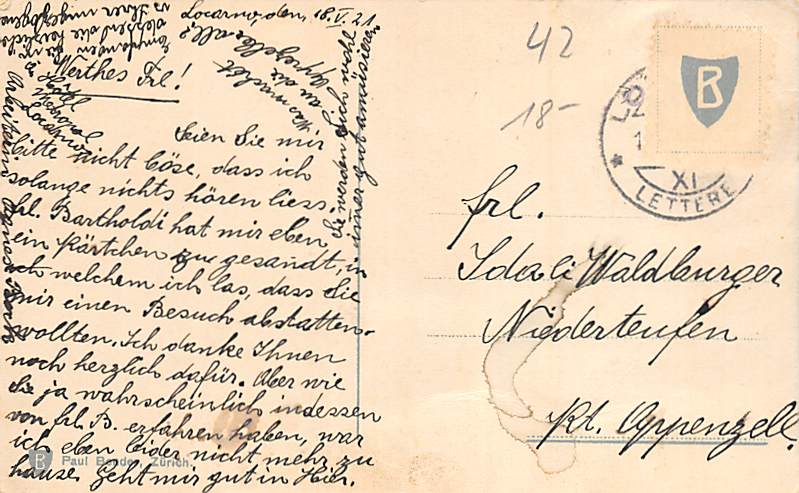 Locarno den, 18. V. 21.
Werthes Frl!
Seien Sie mir
bitte nicht böse, dass ich
solange nichts hören liess.
Frl. Bartholdi hat mir eben
ein Kärtchen zu gesandt, in
welchem ich las, dass Sie
mir einen Besuch abstatten
wollten. Ich danke Ihnen
noch herzlich dafür. Aber wie
Sie ja wahrscheinlich indessen
von Frl. B. erfahren haben, war
ich eben leider nicht mehr zu
hause. Geht mir gut in Hier.
Sie werden sich wohl
immer gut amüsieren
Was macht
an der
alles?
Empfangen Sie
Hotel
Metropol
Locarno
42
18-
B
XI
LETTERE
Frl.
Ida li Waldburger
Niederteufen
Kt. Appenzell.
B Paul Bender, Zürich.